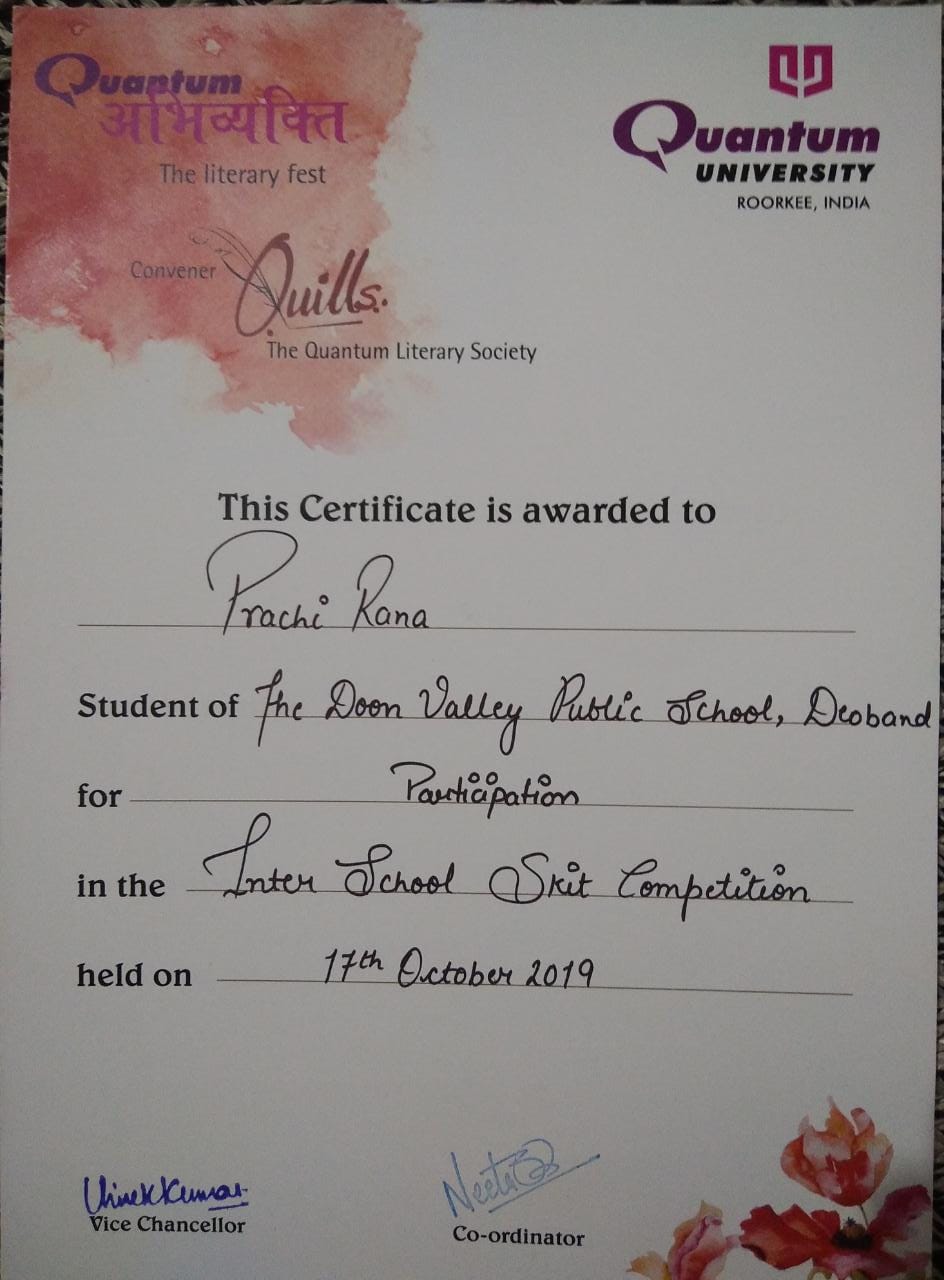 Quantum
अभिव्यक्ति
The literary fest
Convener Quills.
The Quantum Literary Society
Quantum
UNIVERSITY
ROORKEE, INDIA
This Certificate is awarded to
Prachi Rana
Student of The Doon Valley Public School, Deoband
for Participation
in the Inter School Skit Competition
held on 17th October 2019
Vivek Kumar
Vice Chancellor
Neeti
Co-ordinator